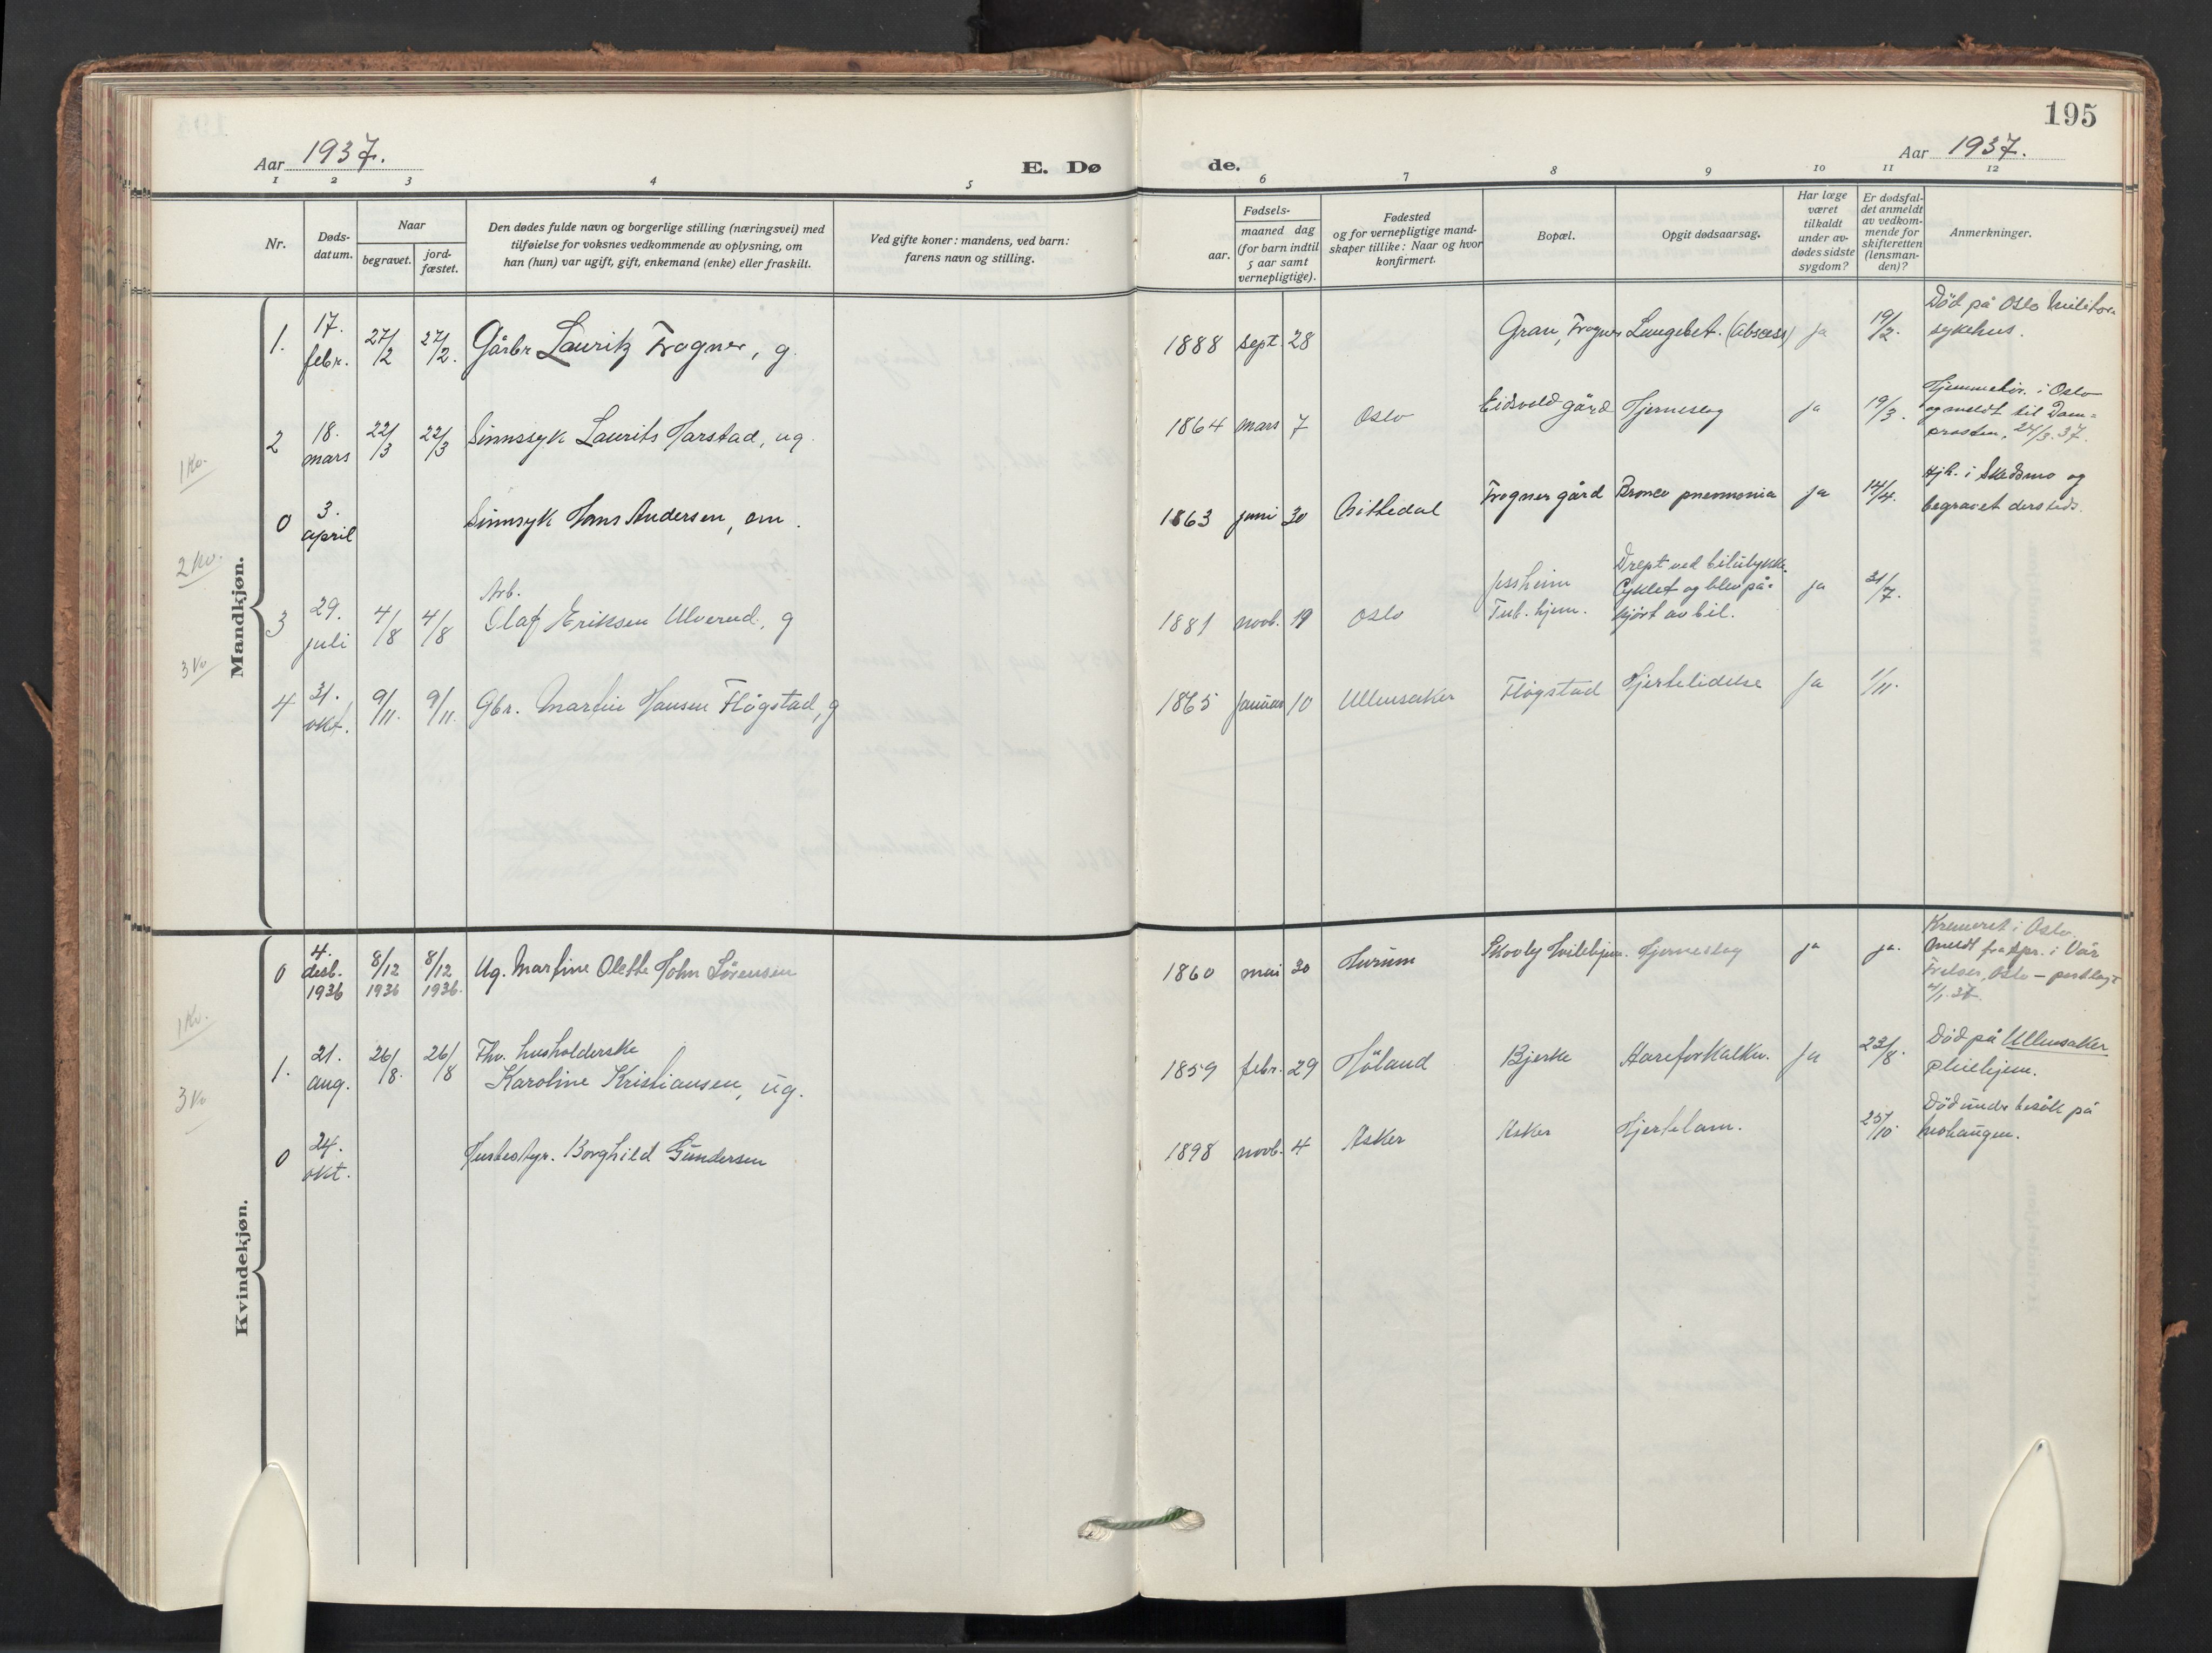 195
Aar 1937.
E. Dø
de.
Aar 1937.
1 2 3 4 5
6 7 8 9 10 11 12
Nr.
Døds-
datum.
Naar
begravet.
jord-
fæstet.
Den dødes fulde navn og borgerlige stilling (næringsvei) med
tilføielse for voksnes vedkommende av oplysning, om
han (hun) var ugift, gift, enkemand (enke) eller fraskilt.
Ved gifte koner: mandens, ved barn:
farens navn og stilling.
Fødsels-
aar.
maaned dag
(for barn indtil
5 aar samt
vernepligtige).
Fødested
og for vernepligtige mand-
skaper tillike: Naar og hvor
konfirmert.
Bopæl.
Opgit dødsaarsag.
Har læge
været
tilkaldt
under av-
dødes sidste
sygdom?
Er dødsfal-
det anmeldt
av vedkom-
mende for
skifteretten
(lensman-
den)?
Anmerkninger.
Mandkjøn.
1. 17. febr. 27/2 27/2. Gårbr Lauritz Frogner, g. 1888 sept. 28 Gran, Frogner Lungebet. (Absces) ja 19/2.
Død på Oslo militære
sykehus.
1 Kv.
2 18. mars 22/3 22/3 Sinnssyk Laurits Harstad, ug. 1864 mars 7 Oslo Eidsvold gård Hjerneslag ja 19/3.
Hjemmehør. i Oslo
og meldt til Dom=
prosten, 24/3.37.
0 3. april Sinnsyk Hans Andersen, em. 1863 juni 30 Nittedal Frogner gård Bronco pneumonia ja 14/4.
hjh. i Skedsmo og
begravet dersteds.
2 Kv.
3 29. juli 4/8 4/8
Arb.
Olaf Eriksen Ulverud, g 1881 novb. 19 Oslo
Jessheim
Tub. hjem.
Drept ved bilulykke.
Cyklet og blev på-
kjørt av bil.
ja 31/7.
3 Kv
4 31. okt. 9/11. 9/11. Gbr. Martin Hansen Fløgstad, g 1865 januar 10 Ullensaker Fløgstad Hjertelidelse Ja 1/11.
Kvindekjøn.
0 4. desb. 1936 8/12 1936 8/12 1936. Ug. Martine Olette John Sørensen 1860 mai 30 Hurum Skovly Hvilehjem. Hjerneslag ja ja.
Kremeret i Oslo.
Meldt fra spr. i Vår
Frelser, Oslo –
4/1.37.
1 Kv.
1. 21. aug. 26/8. 26/8
Fhv. husholderske
Karoline Kristiansen, ug. 1859 febr. 29 Høland Bjerke Åreforkalkn. Ja 23/8.
Død på Ullensaker
pleiehjem.
3 Kv
0 24. okt. Husbestyr. Borghild Gundersen 1898 novb. 4 Asker Asker Hjertelam. 25/10.
Død under besøk på
Mohaugen.